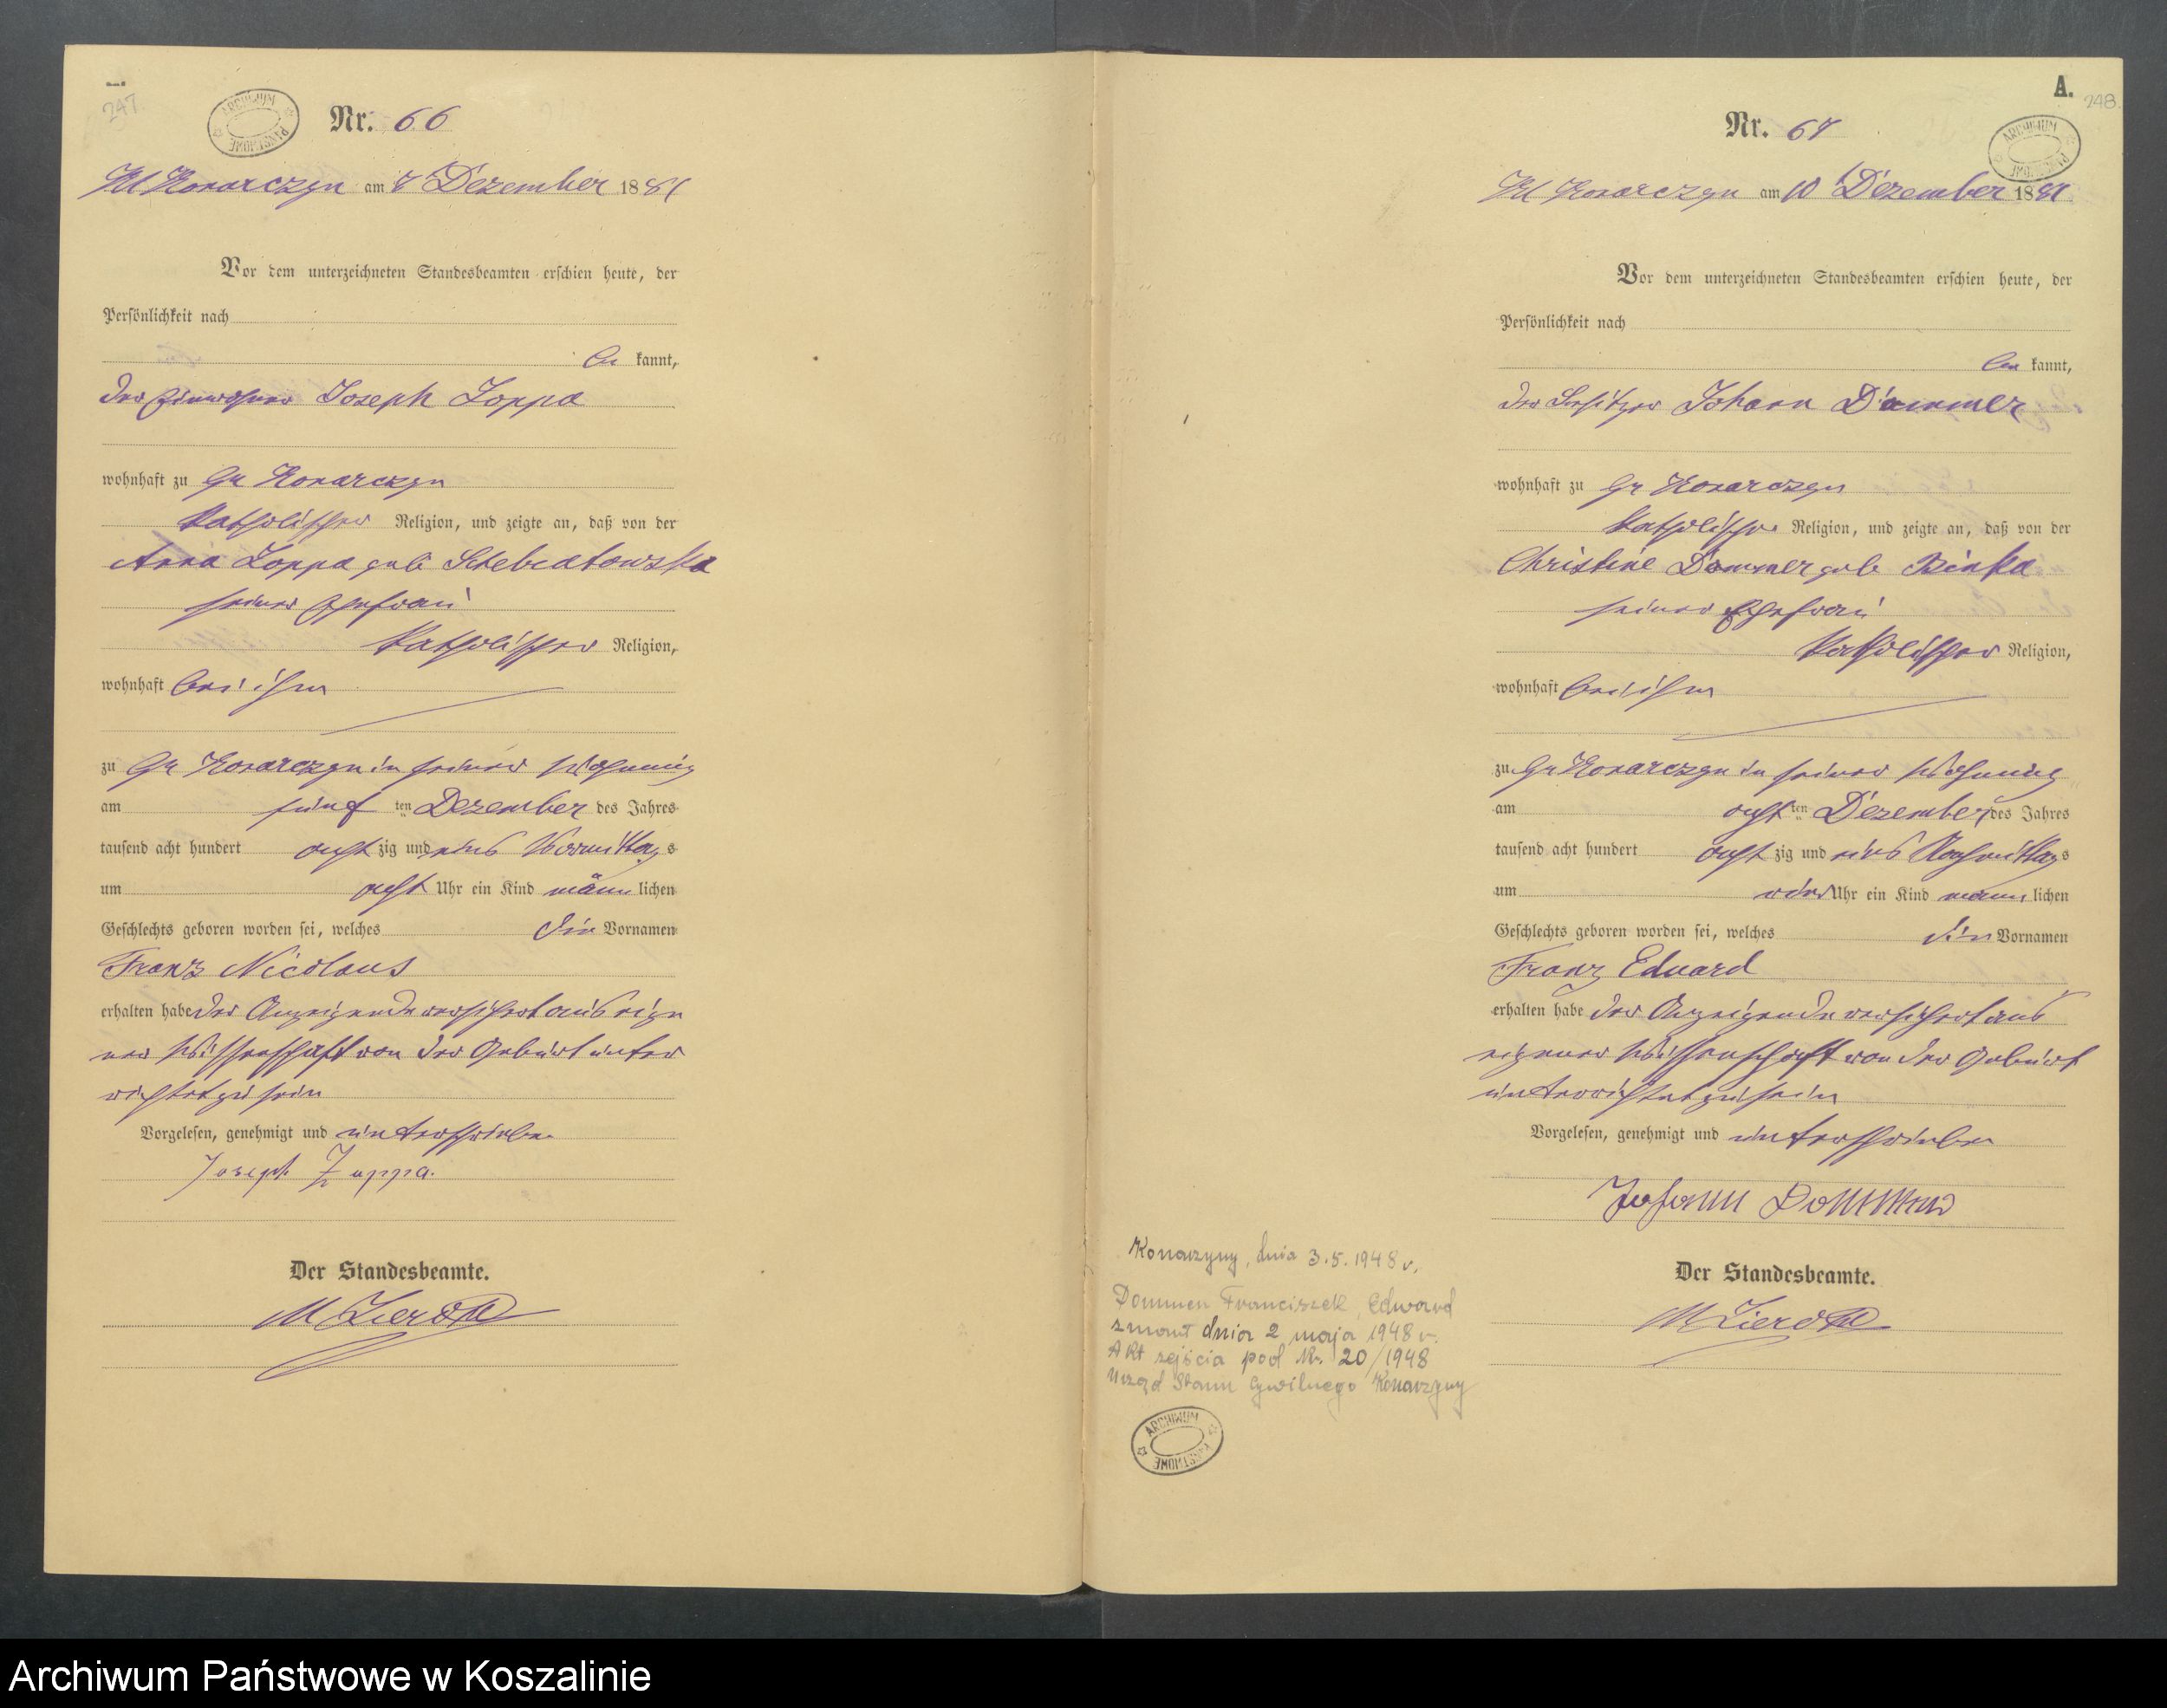 247
ARCHIWUM PAŃSTWOWE
Nr. 66
Kl Konarczyn am 8 Dezember 1881
Vor dem unterzeichneten Standesbeamten erschien heute, der
Persönlichkeit nach
be kannt,
der Einwohner Joseph Zoppa
wohnhaft zu Gr Konarczyn
katholischer Religion, und zeigte an, daß von der
Anna Zoppa geb
seiner Ehefrau
katholischer Religion,
wohnhaft bei ihm
zu Gr Konarczyn in seiner Wohnung
am fünf ten Dezember des Jahres
tausend acht hundert acht zig und eins Vormittag s
um acht Uhr ein Kind männ lichen
Geschlechts geboren worden sei, welches die Vornamen
Franz Nicolaus
erhalten habe der Anzeigende versichert aus eige
ner Wissenschaft von der Geburt unter
richtet zu sein
Vorgelesen, genehmigt und unterschrieben
Joseph Zuppa.
Der Standesbeamte.
A.
248.
Nr. 67
ARCHIWUM PAŃSTWOWE
Kl Konarczyn am 10 Dezember 1881
Vor dem unterzeichneten Standesbeamten erschien heute, der
Persönlichkeit nach
be kannt,
der Besitzer Johann Dammer
wohnhaft zu Gr Konarczyn
katholischer Religion, und zeigte an, daß von der
Christine Dommer geb Binka
seiner Ehefrau
katholischer Religion,
wohnhaft bei ihm
zu Gr Konarczyn in seiner Wohnung
am acht ten Dezember des Jahres
tausend acht hundert acht zig und eins Nachmittag s
um vier Uhr ein Kind männ lichen
Geschlechts geboren worden sei, welches die Vornamen
Franz Eduard
erhalten habe der Anzeigende versichert aus
eigener Wissenschaft von der Geburt
unterrichtet zu sein
Vorgelesen, genehmigt und unterschrieben
Johann Dommer
Der Standesbeamte.
Konarzyny, dnia 3.5.1948 r.
Dommer Franciszek, Edward
zmarł dnia 2 maja 1948 r.
Akt zejścia pod Nr. 20/1948
Urząd Stanu Cywilnego Konarzyny
ARCHIWUM PAŃSTWOWE
Archiwum Państwowe w Koszalinie